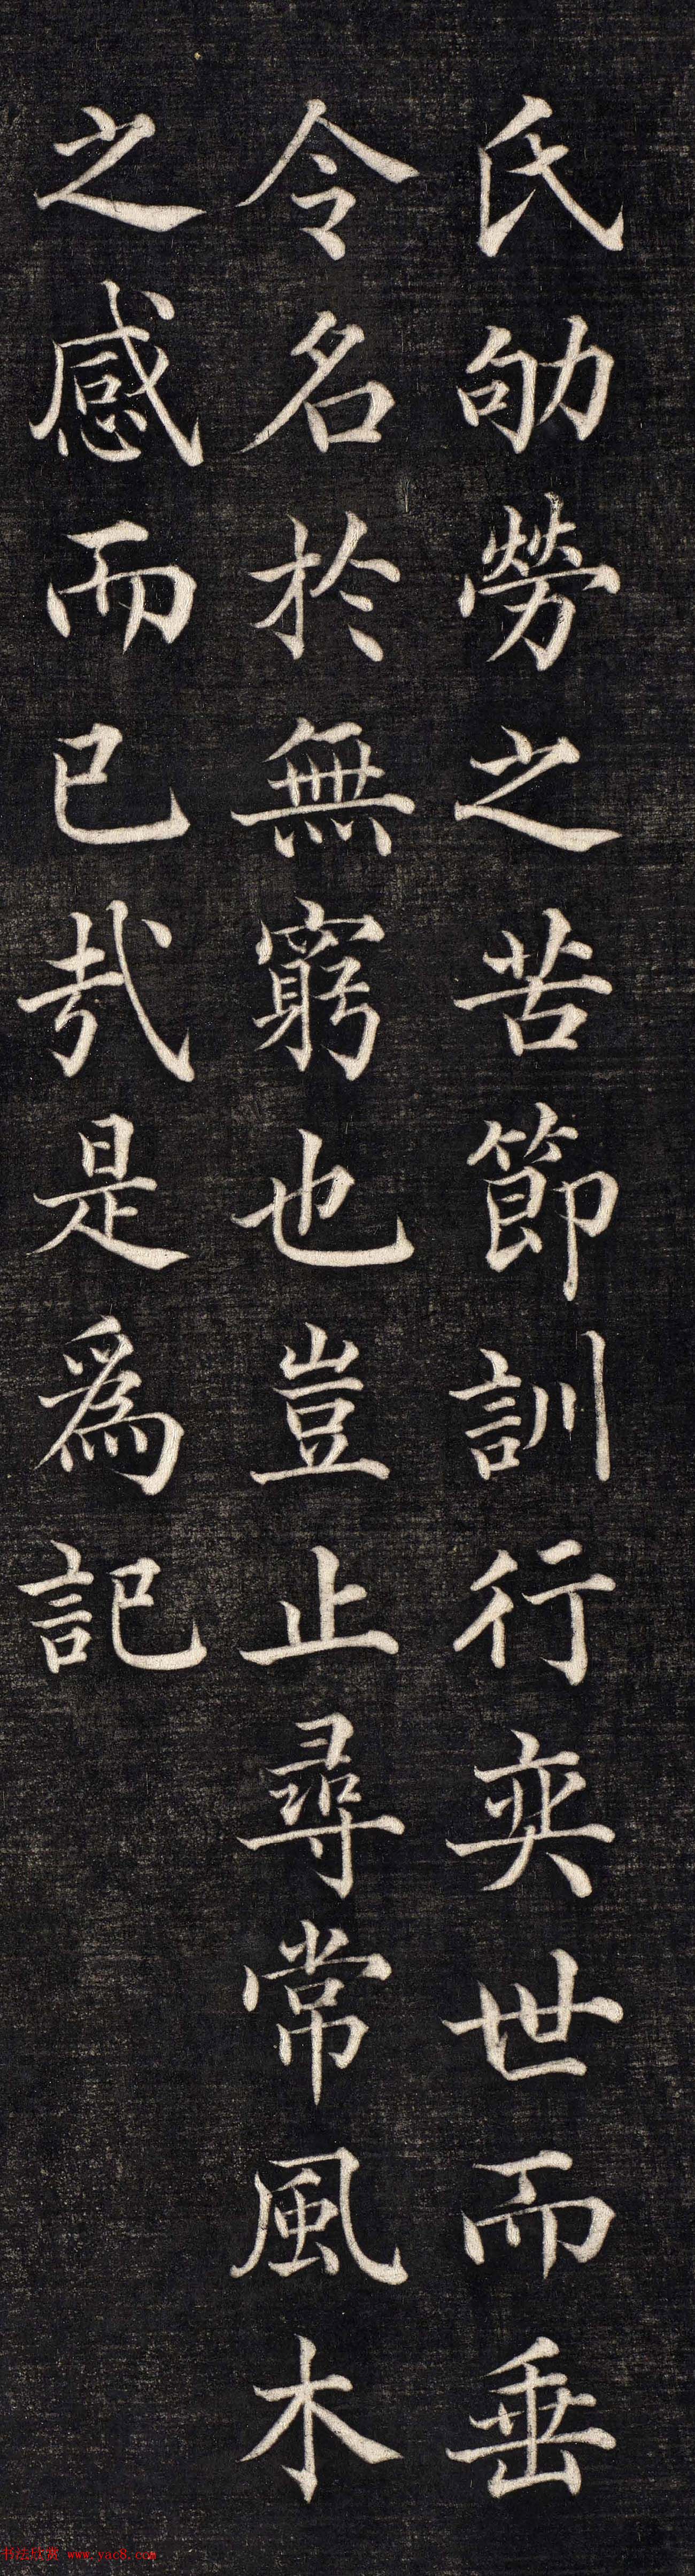 氏劬勞之苦節訓行奕世而垂
令名於無窮也豈止尋常風木
之感而已哉是爲記
www.yac8.com